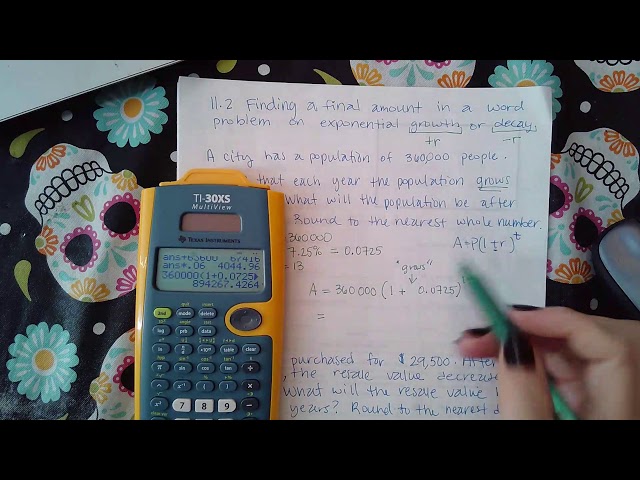 11.2 Finding a final amount in a word
problem on exponential growth or decay.
+r -r
A city has a population of 360000 people.
that each year the population grows
what will the population be after
Round to the nearest whole number.
360000
7.25% = 0.0725
= 13
A=P(1±r)^t
"grows"
A = 360000 (1 + 0.0725)
=
purchased for $29,500. After
, the resale value decrease
what will the resale value
years? Round to the nearest
TI-30XS
MultiView
TEXAS INSTRUMENTS
ans+.06 4044.96
360000(1+0.0725
894267.4264
2nd mode delete
log prb data
ln table clear
π sin cos tan
7 8 9